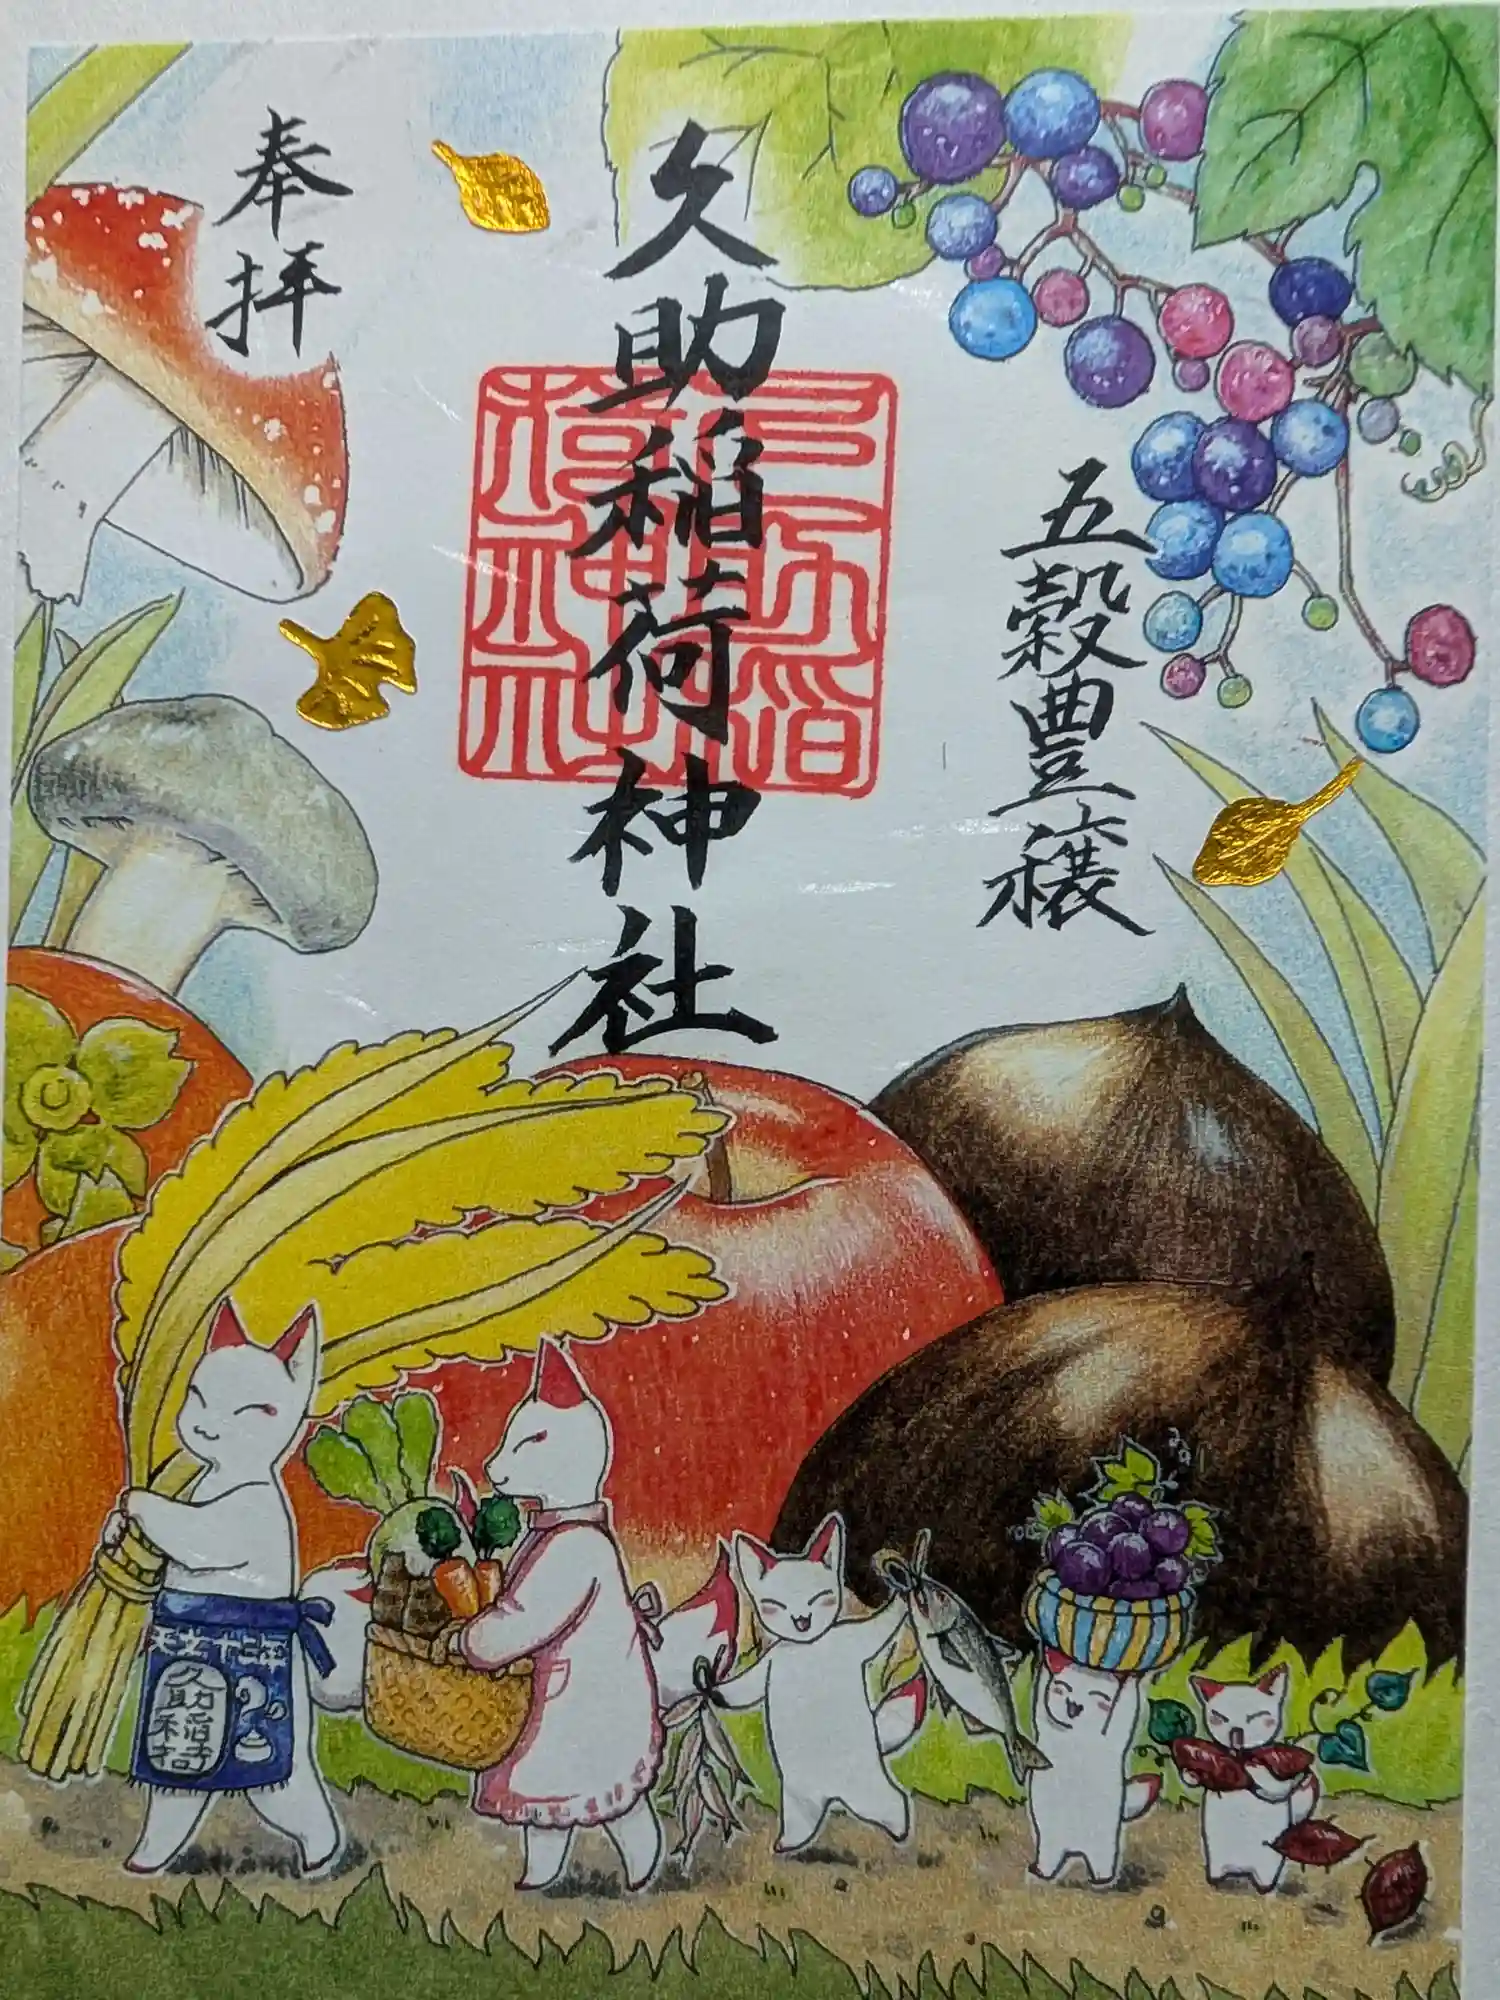 五穀豊穣
久助稲荷神社
奉拝
天文十二年
久助稲荷